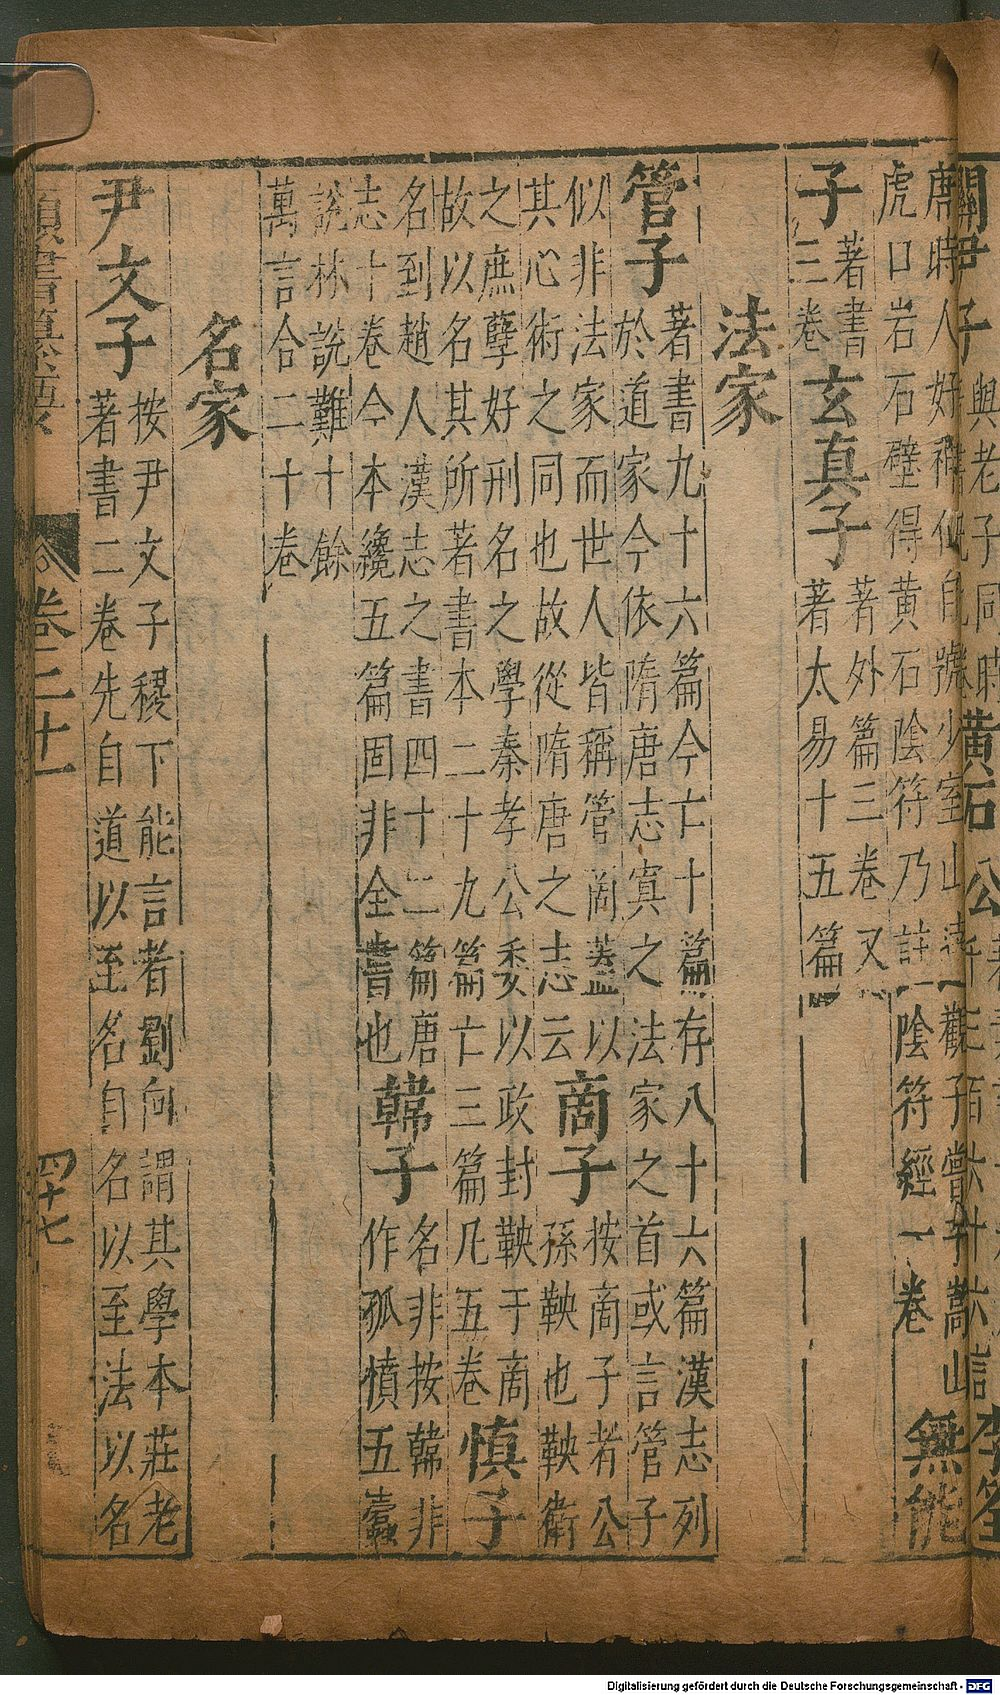 關尹子 與老子同時 黃石公
三百六十六言 李筌
唐時人好 自號少室山 觀子嘗 嵩山
虎口岩石壁得黃石陰符乃註 陰符經一卷 無能
子 著書三卷 玄真子 著外篇三卷又
著太易十五篇
法家
管子 著書九十六篇今亡十篇存八十六篇漢志列
於道家今依隋唐志寘之法家之首或言管子
似非法家而世人皆稱管商蓋以
其心術之同也故從隋唐之志云 商子 按商子者公
孫鞅也鞅衛
之庶孽好刑名之學秦孝公委以政封鞅于商
故以名其所著書本二十九篇亡三篇凡五卷 慎子
名到趙人漢志之書四十二篇唐
志十卷今本纔五篇固非全書也 韓子 名非按韓非
作孤憤五蠹
說林說難十餘
萬言合二十卷
名家
尹文子 按尹文子稷下能言者劉向謂其學本莊老
著書二卷先自道以至名自名以至法以名
卷二十一
四十七
Digitalisierung gefördert durch die Deutsche Forschungsgemeinschaft - DFG